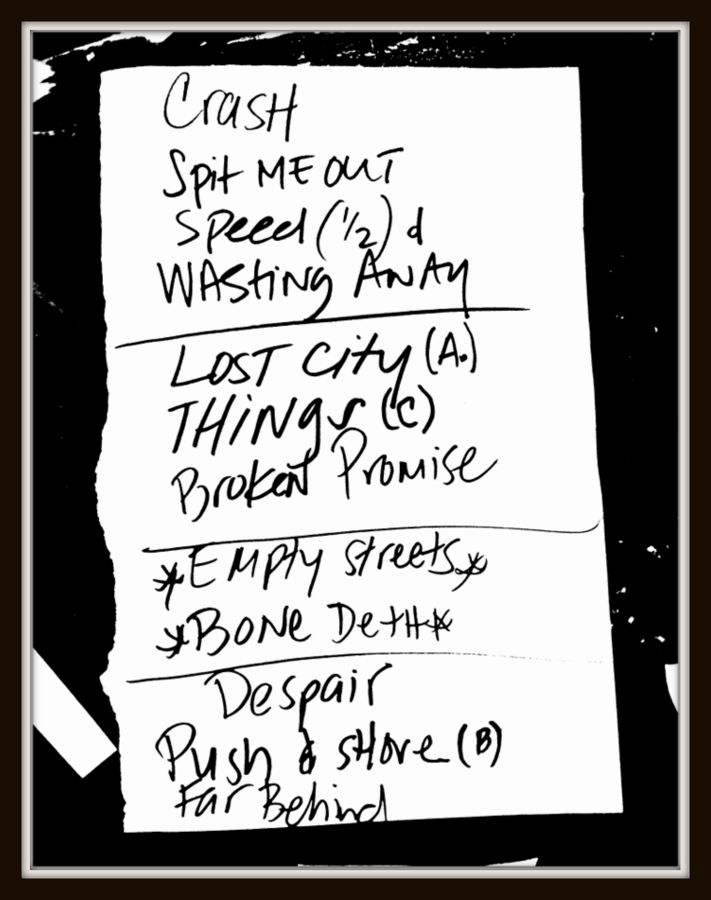 CrasH
Spit ME OUT
Speed (1/2) d
WAStiNg AWAy
LOST City (A.)
THiNgs (C)
Broken Promise
*EMPty Streets*
*BoNe DetH*
Despair
Push & sHove (B)
Far Behind